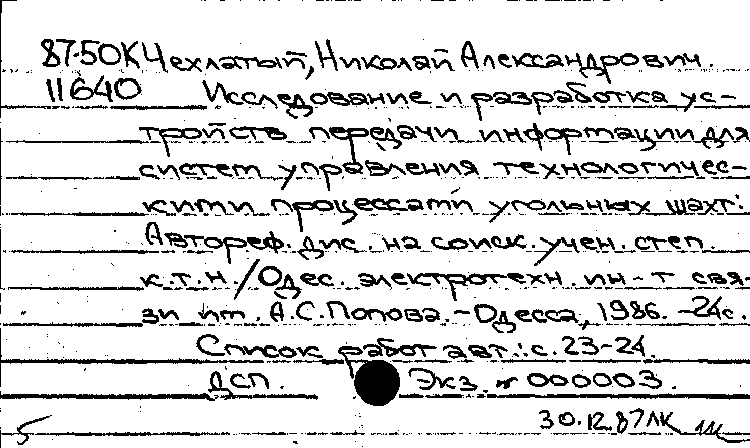 87-50К Чехлатый, Николай Александрович.
11640 Исследование и разработка ус-
тройств передачи информации для
систем управления технологичес-
кими процессами угольных шахт:
Автореф. дис. на соиск. учен. степ.
к.т.н./Одес. электротехн. ин-т свя-
зи им. А.С.Попова. - Одесса, 1986. - 24с.
Список работ авт.: с. 23-24.
ДСП. Экз. № 000003.
30.12.87 ЛК
5